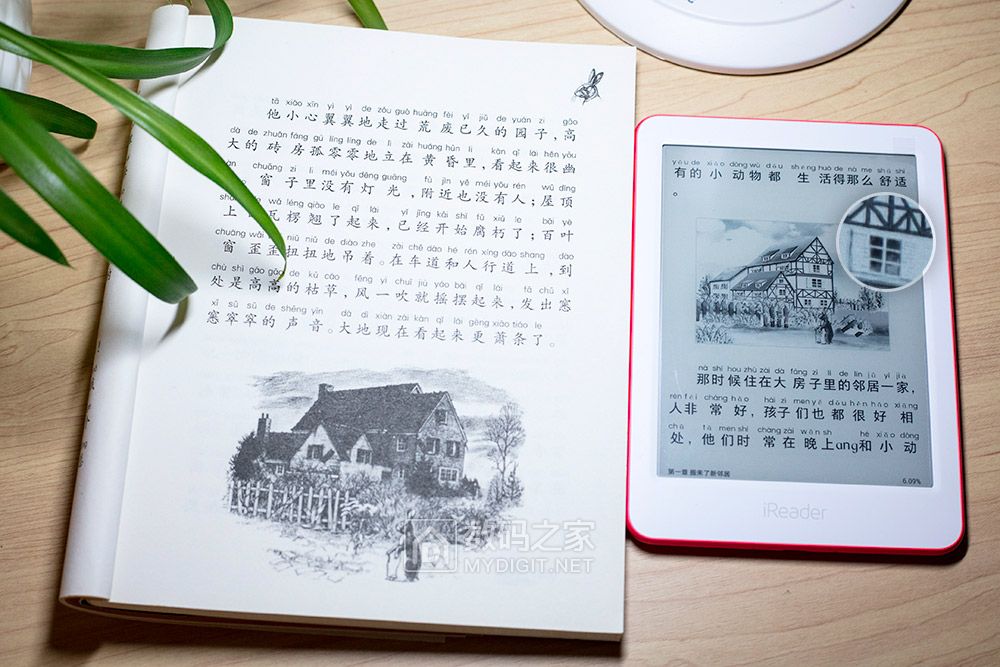 tā xiǎo xīn yì yì de zǒu guò huāng fèi yǐ jiǔ de yuán zi gāo
他小心翼翼地走过 荒 废已久的园子,高
dà de zhuān fáng gū líng líng de lì zài huáng hūn lǐ kàn qǐ lái hěn yōu
大的砖房孤零零地立在黄昏里,看起来很幽
chuāng zi lǐ méi yǒu dēng guāng fù jìn yě méi yǒu rén wū dǐng
窗子里没有灯光,附近也没有人;屋顶
wǎ léng qiào le qǐ lái yǐ jīng kāi shǐ fǔ xiǔ le bǎi yè
上 瓦楞翘了起来,已经开始腐朽了;百叶
chuāng wāi niǔ niǔ de diào zhe zài chē dào hé rén xíng dào shang dào
窗歪歪扭扭地吊着。在车道和人行道上,到
chù shì gāo gāo de kū cǎo fēng yì chuī jiù yáo bǎi qǐ lái fā chū xī
处是高高的枯草,风一吹就摇摆起来,发出窸
xī sū sū de shēng yīn dà dì xiàn zài kàn qǐ lái gèng xiāo tiáo le
窸窣窣的声音。大地现在看起来更萧条了。
数码之家
MYDIGIT.NET
yǒu de xiǎo dòng wù dōu shēng huó de nà me shū shì
有的小动物都 生活得那么舒适
。
nà shí hou zhù zài dà fáng zi lǐ de lín jū yì jiā
那时候住在大房子里的邻居一家,
rén fēi cháng hǎo hái zi men yě dōu hěn hǎo xiāng
人非 常好,孩子们也都很好相
chǔ tā men shí cháng zài wǎn sh hé xiǎo dòng
处,他们时 常在晚上ang和小动
第一章 搬来了新邻居
6.09%
iReader